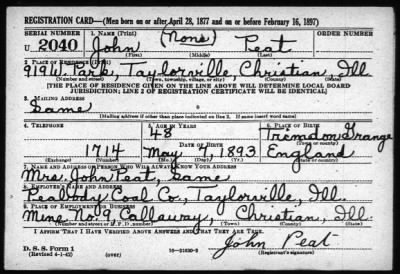 REGISTRATION CARD—(Men born on or after April 28, 1877 and on or before February 16, 1897)
SERIAL NUMBER 1. NAME (Print) ORDER NUMBER
U 2040 John (None) Peat
(First) (Middle) (Last)
2. PLACE OF RESIDENCE (Print)
919 W. Park, Taylorville, Christian, Ill.
(Number and street) (Town, township, village, or city) (County) (State)
[THE PLACE OF RESIDENCE GIVEN ON THE LINE ABOVE WILL DETERMINE LOCAL BOARD
JURISDICTION; LINE 2 OF REGISTRATION CERTIFICATE WILL BE IDENTICAL]
3. MAILING ADDRESS
Same
[Mailing address if other than place indicated on line 2. If same insert word same]
4. TELEPHONE 5. AGE IN YEARS 6. PLACE OF BIRTH
48 Tremdon Grange
DATE OF BIRTH
1714 May 7, 1893 England
(Exchange) (Number) (Mo.) (Day) (Yr.) (State or country)
7. NAME AND ADDRESS OF PERSON WHO WILL ALWAYS KNOW YOUR ADDRESS
Mrs. John Peat, Same
8. EMPLOYER'S NAME AND ADDRESS
Peabody Coal Co., Taylorville, Ill.
9. PLACE OF EMPLOYMENT OR BUSINESS
Mine No. 9, Callaway, Christian, Ill.
(Number and street or R. F. D. number) (Town) (County) (State)
I AFFIRM THAT I HAVE VERIFIED ABOVE ANSWERS AND THAT THEY ARE TRUE.
John Peat
D. S. S. Form 1
(Revised 4-1-42) (over) (Registrant's signature)